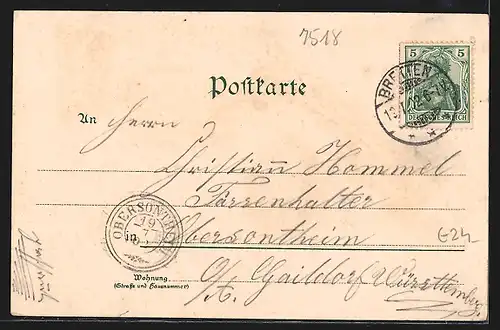 7518
5 5
DEUTSCHES REICH
BREMEN
Postkarte
An Herrn
Christian Hommel
Farrenhalter
OBERSONTHEIM
19
7
in Obersontheim
E24
O/A. Gaildorf Württemberg.
Wohnung
(Straße und Hausnummer)